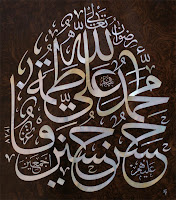 رضوان الله تعالى
محمد علي فاطمة
حسن حسين
عليهم اجمعين
١٢٨٧